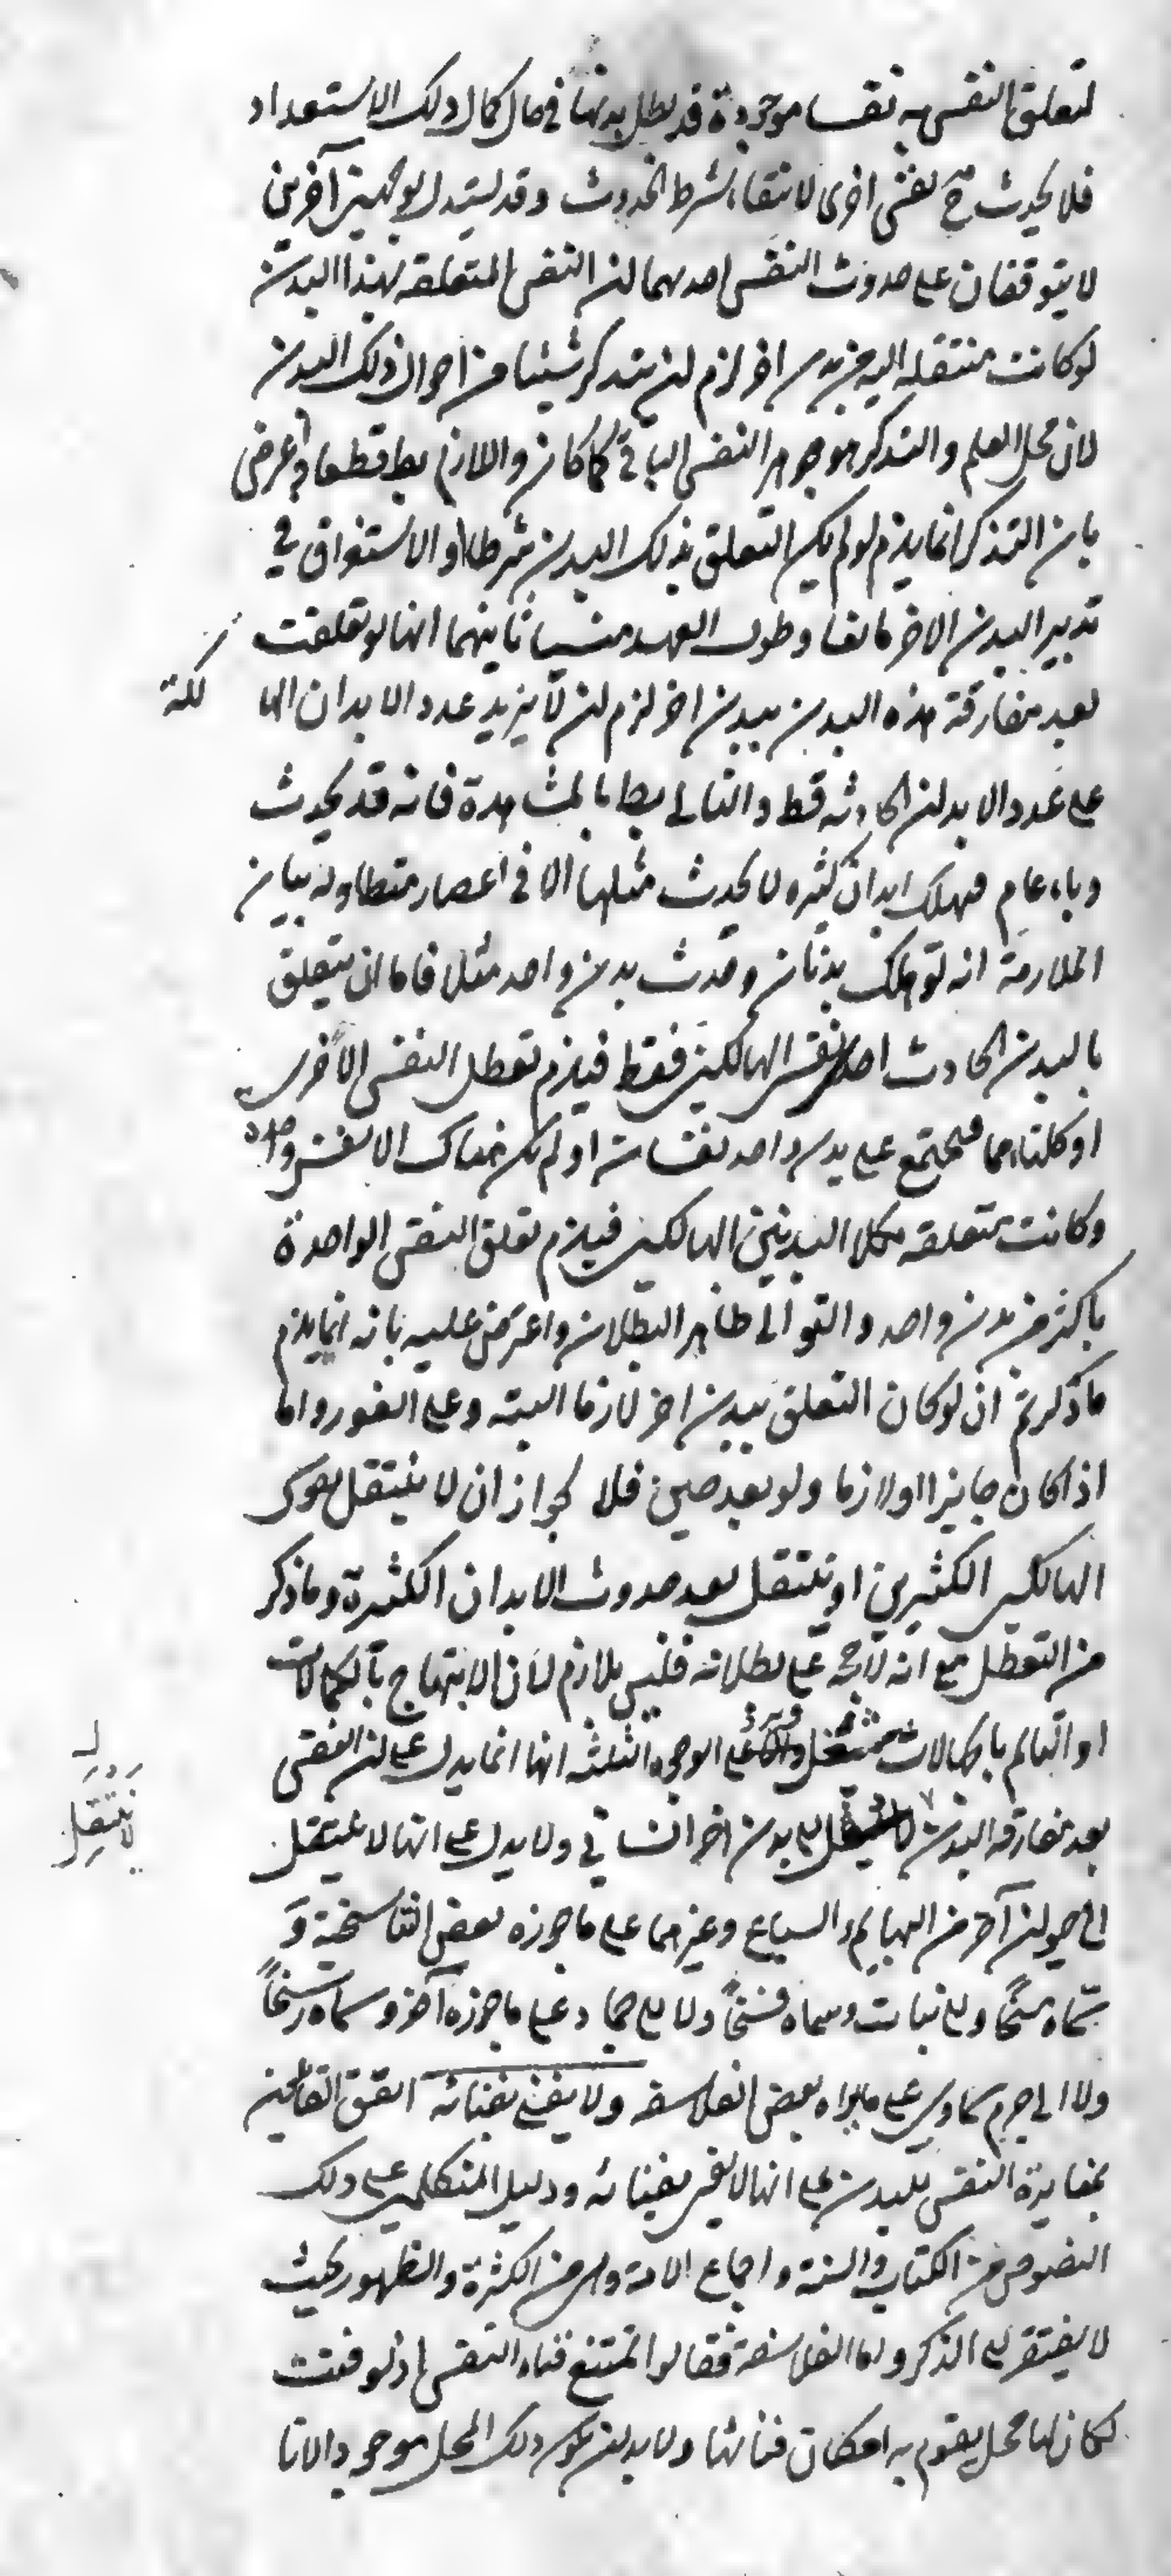 لتعلق النفس به نفسا موجودة قد بطل بدنها في حال كمال ذلك الاستعداد
فلا يحدث ح نفس اخرى لانتفاء شرط الحدوث وقد يستدل بوجهين آخرين
لا يتوقفان على حدوث النفس احدهما لن النفس المتعلقه بهذا البدن
لو كانت منتقله اليه من بدن اخر لزم لن يتذكر شيئا من احوال ذلك البدن
لان محل العلم والتذكر هو جوهر النفس الباقي كما كان واللازم بط قطعا واعترض
بان التذكر انما يلزم لو لم يكن التعلق بذلك البدن شرطا او الاستغراق في
تدبير البدن الاخر مانعا وطول العهد منسيا ثانيهما انها لو تعلقت
بعد مفارقة هذه البدن ببدن اخر لزم لن لا يزيد عدد الابدان الها لكة
على عدد الابدان الحادثه قط والتالي بط بالمشاهدة فانه قد يحدث
وباء عام فيهلك ابدان كثيره لا يحدث مثلها الا في اعصار متطاوله بيان
الملازمة انه لو هلك بدنان وحدث بدن واحد مثلا فاما ان يتعلق
بالبدن الحادث احد نفس الهالكين فقط فيلزم تعطل النفس الاخرى
او كلتاهما فيجتمع على بدن واحد نفسان او لم يكن هناك الا نفس واحدة
وكانت متعلقه بكلا البدنين الهالكين فيلزم تعلق النفس الواحدة
باكثر من بدن واحد والتوالي ظاهر البطلان واعترض عليه بانه انما يلزم
ما ذكرتم ان لو كان التعلق ببدن اخر لازما البته وعلى الفور واما
اذا كان جايزا او لازما ولو بعد حين فلا لجواز ان لا ينتقل نفوس
الهالكين الكثيرين او ينتقل بعد حدوث الابدان الكثيرة وما ذكر
من التعطل مع انه لا حجة على بطلانه فليس بلازم لان الابتهاج بالكمالات
او التالم بالجهالات شغل ويرد على الوجوه الثلثه انها انما يدل على لن النفس
بعد مفارقه البدن لا ينتقل الى بدن اخر انساني ولا يدل على انها لا ينتقل
لا ينتقل
الى حيوان آخر من البهايم والسباع وغيرهما على ما جوزه بعض التناسخية و
سماه مسخا ولا الى نبات وسماه فسخا ولا الى جماد على ما جوزه آخر وسماه رسخا
ولا الى جرم سماوي على ما يراه بعض الفلاسفه ولا يفنى بفنائه اتفق القائلين
بمغايرة النفس للبدن على انها لا يفنى بفنائه ودليل المتكلمين على ذلك
النصوص من الكتاب والسنة واجماع الامة وهي من الكثرة والظهور بحيث
لا يفتقر الى الذكر واما الفلاسفة فقالوا يمتنع فناء النفس اذ لو فنت
لكان لها محل يقوم به امكان فنائها ولا بد لن يكون ذلك المحل موجودا لانا